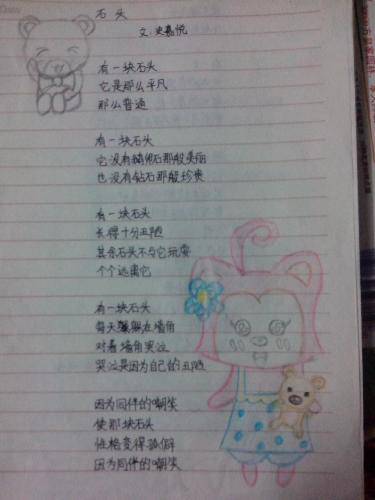 石头
文:史嘉悦
有一块石头
它是那么平凡
那么普通
有一块石头
它没有鹅卵石那般美丽
也没有钻石那般珍贵
有一块石头
长得十分丑陋
其余石头不与它玩耍
个个远离它
有一块石头
每天躲在墙角
对着墙角哭泣
哭泣是因为自己的丑陋
因为同伴的嘲笑
使那块石头
性格变得孤僻
因为同伴的嘲笑